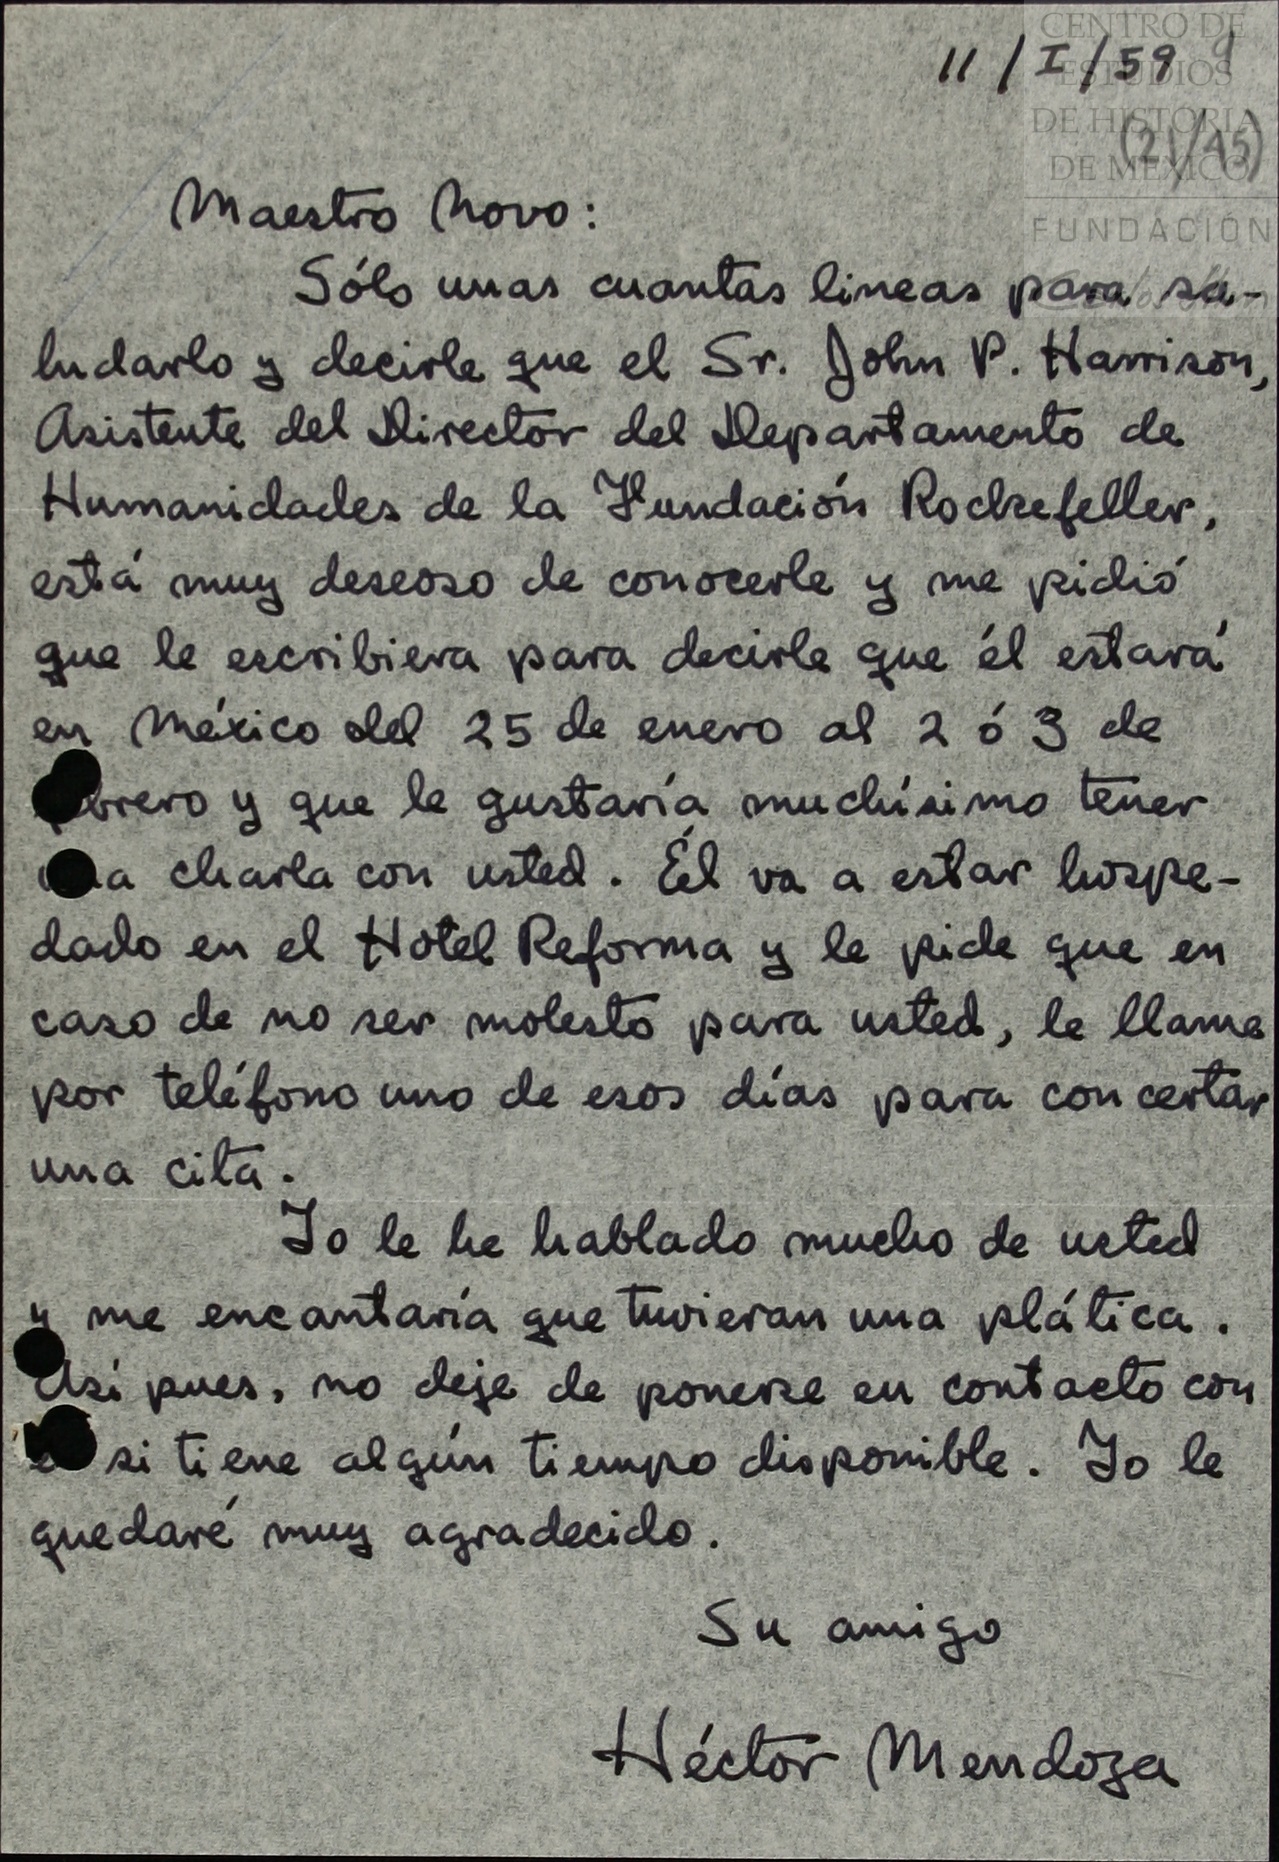 CENTRO DE
ESTUDIOS
DE HISTORIA
DE MÉXICO
FUNDACIÓN
11/I/59
(21/45)
Maestro Novo:
Sólo unas cuantas lineas para sa-
ludarlo y decirle que el Sr. John P. Harrison,
Asistente del Director del Departamento de
Humanidades de la Fundación Rockefeller,
está muy deseoso de conocerle y me pidió
que le escribiera para decirle que él estará
en México del 25 de enero al 2 ó 3 de
brero y que le gustaría muchísimo tener
a charla con usted. Él va a estar hospe-
dado en el Hotel Reforma y le pide que en
caso de no ser molesto para usted, le llame
por teléfono uno de esos días para concertar
una cita.
Yo le he hablado mucho de usted
y me encantaría que tuvieran una plática.
Así pues, no deje de ponerse en contacto con
si tiene algún tiempo disponible. Yo le
quedaré muy agradecido.
Su amigo
Héctor Mendoza